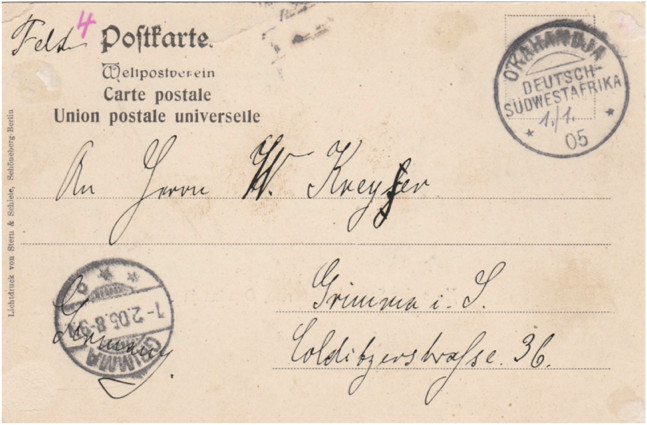 4
Feld Postkarte.
Weltpostverein
Carte postale
Union postale universelle
OKAHANDJA
DEUTSCH-
SÜDWESTAFRIKA
1./1.
05
An Herrn W. Kreyser
Grimma i. S.
Colditzerstrasse. 36.
Germany.
GRIMMA
1-2.05.8-9
Lichtdruck von Stern & Schiele, Schöneberg-Berlin